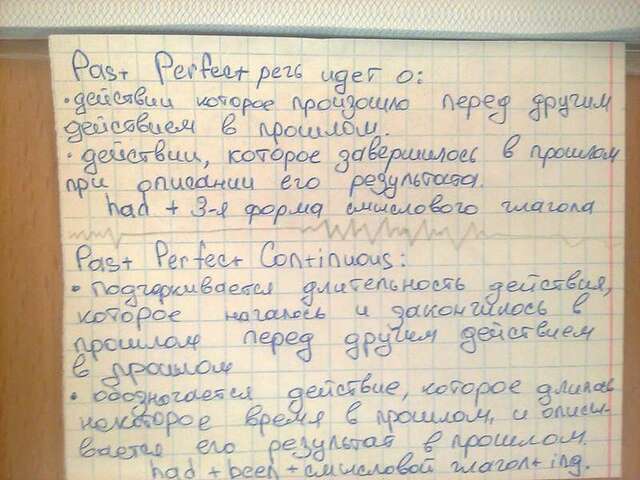 Past Perfect речь идет о:
• действии которое произошло перед другим
действием в прошлом.
• действии, которое завершилось в прошлом
при описании его результата.
had + 3-я форма смыслового глагола
Past Perfect Continuous:
• подчеркивается длительность действия,
которое началось и закончилось в
прошлом перед другим действием
в прошлом
• обозначается действие, которое длилось
некоторое время в прошлом, и описы-
вается его результат в прошлом.
had + been + смысловой глагол + ing.